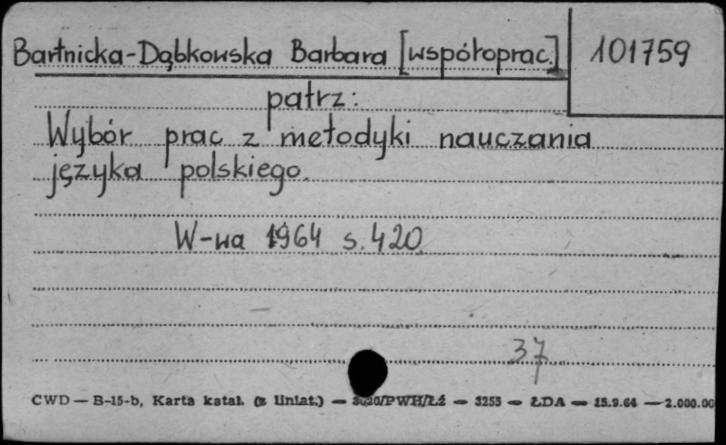 Bartnicka-Dąbkowska Barbara [współoprac.] 101759
patrz:
Wybór prac z metodyki nauczania
języka polskiego.
W-wa 1964 s. 420
37
CWD — B-15-b, Karta katal. (z liniat.) — /PWH/Łź — 3255 — ŁDA — 15.9.64 — 2.000.00